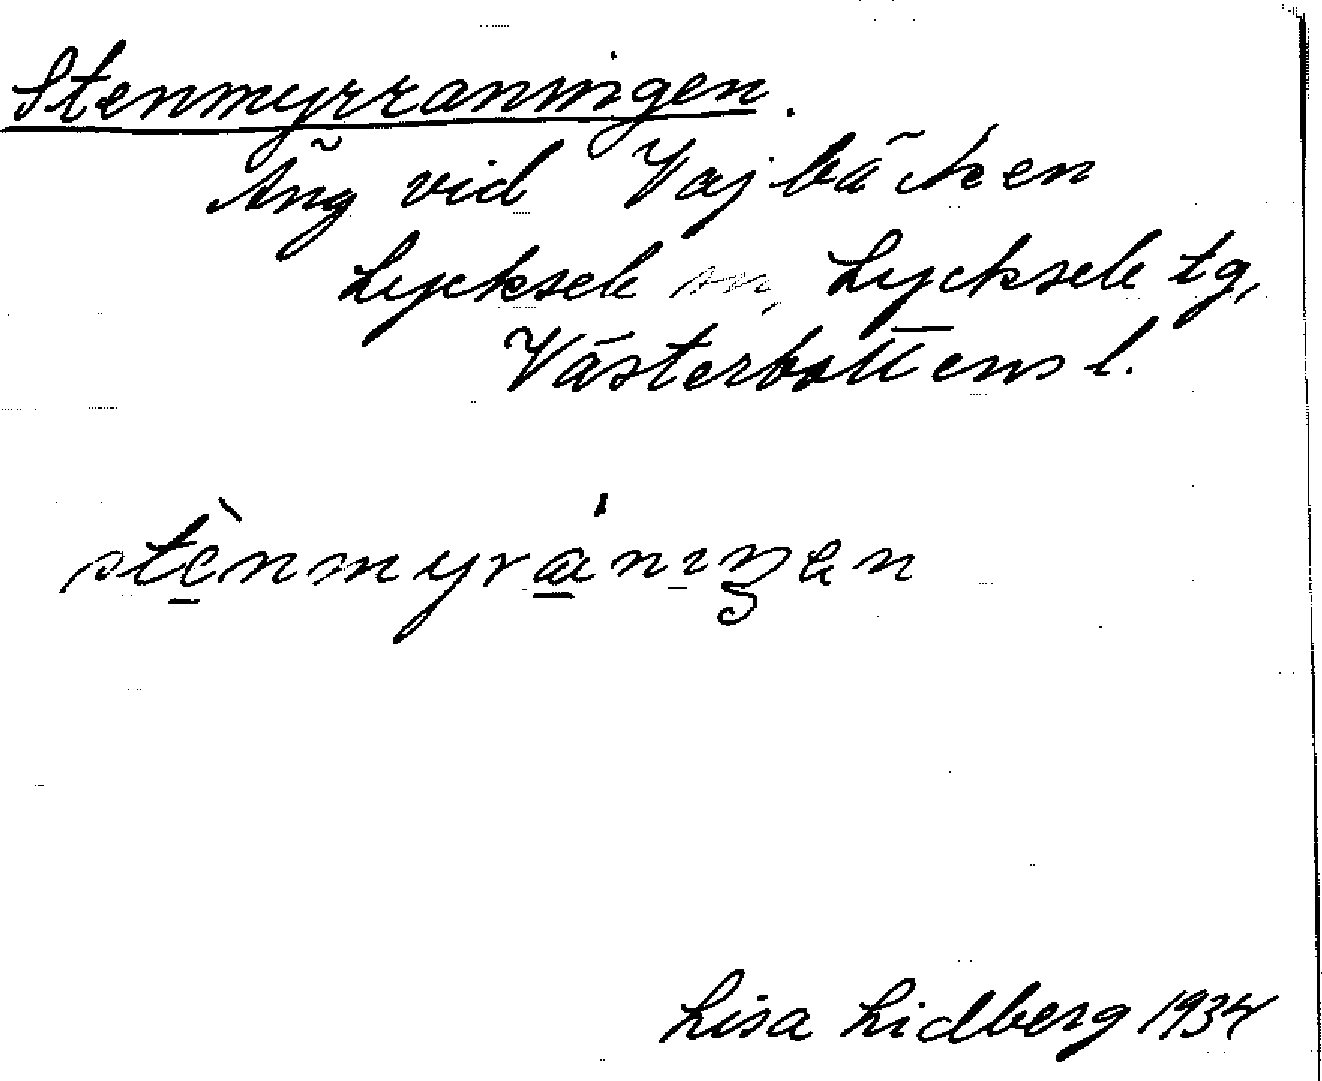 Stenmyrraningen.
Äng vid Vajbäcken
Lycksele sn, Lycksele tg,
Västerbottens l.
stènmyrániŋen
Lisa Lidberg 1934